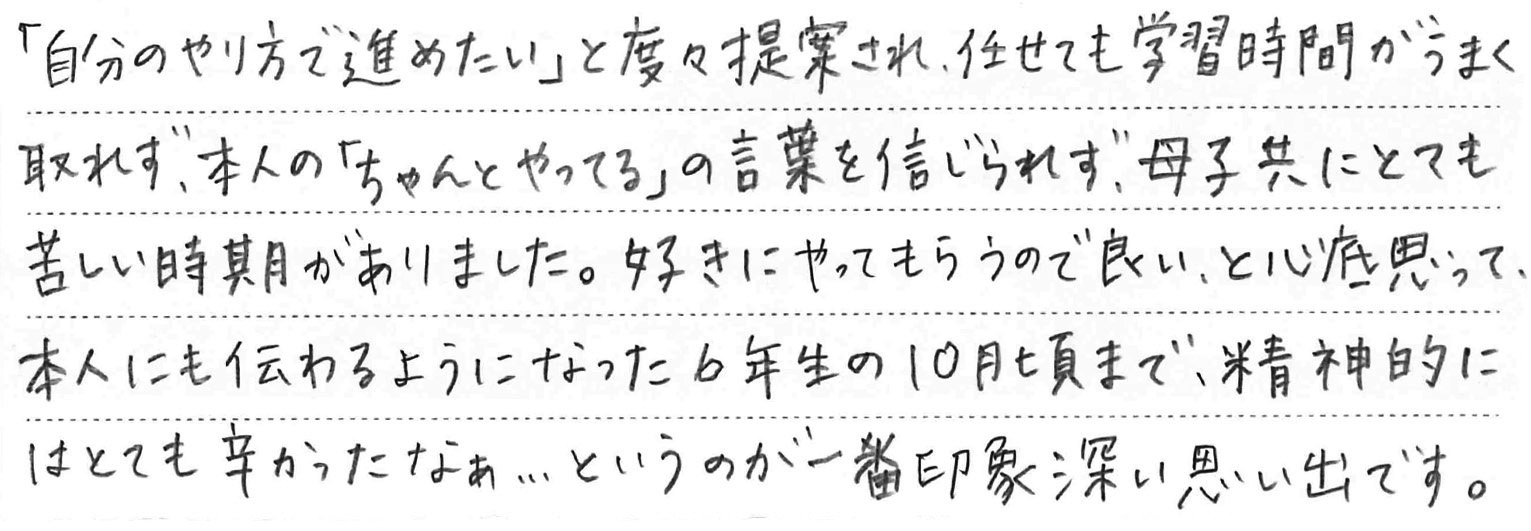 「自分のやり方で進めたい」と度々提案され、任せても学習時間がうまく
取れず、本人の「ちゃんとやってる」の言葉を信じられず、母子共にとても
苦しい時期がありました。好きにやってもらうので良い、と心底思って、
本人にも伝わるようになった6年生の10月頃まで、精神的に
はとても辛かったなぁ…というのが一番印象深い思い出です。